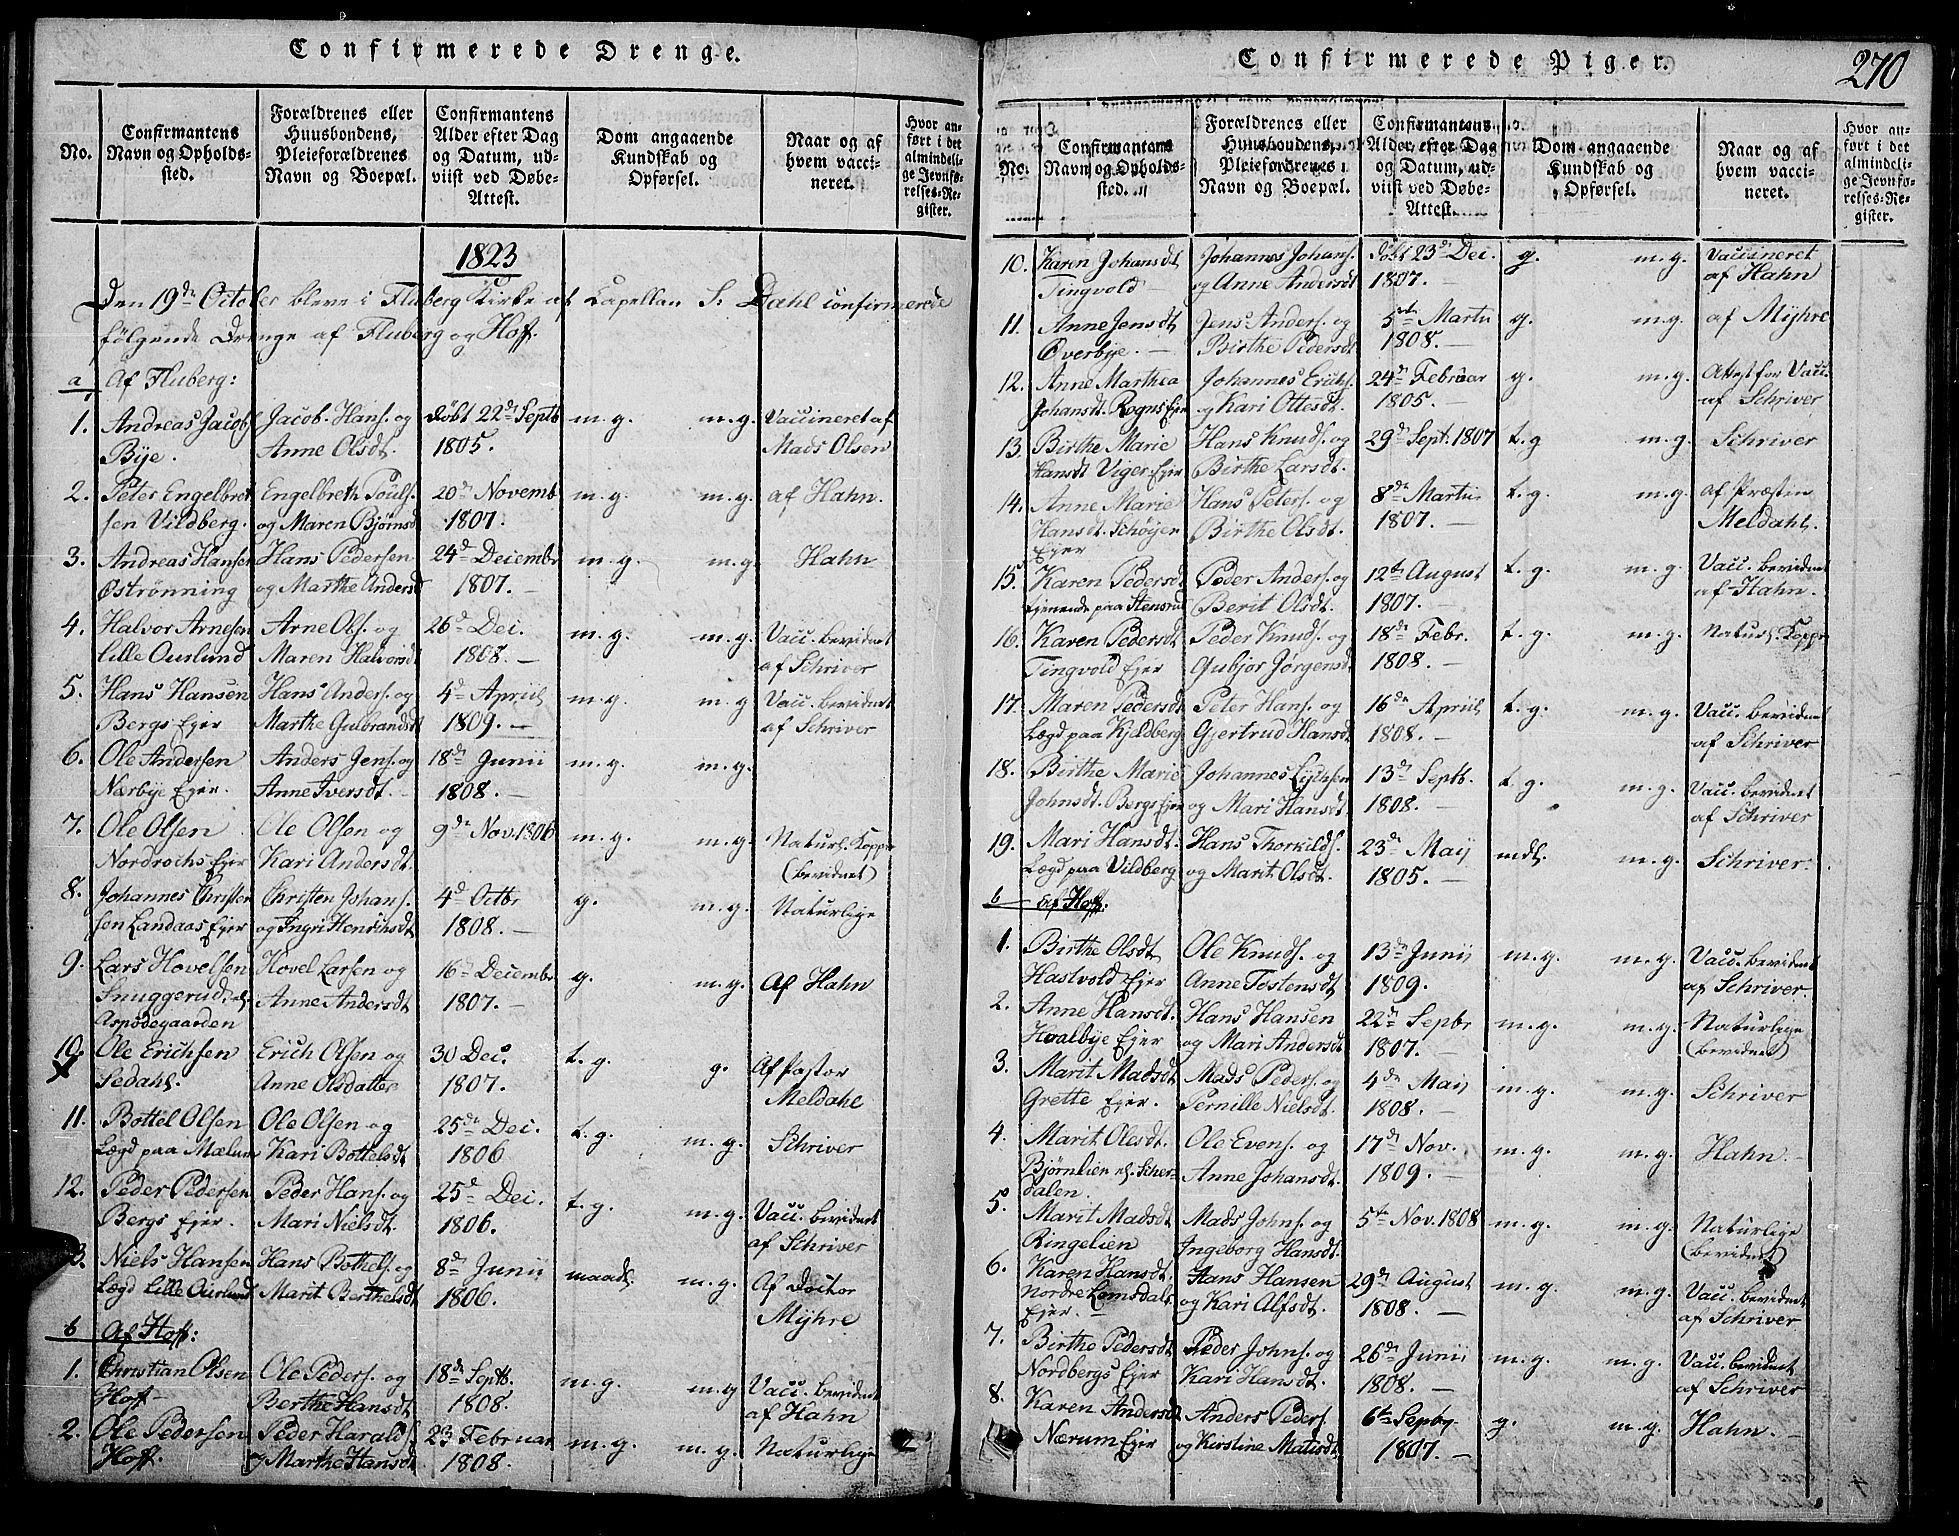 Confirmerede Drenge.
No.
Confirmantens Navn og Opholdssted.
Forældrenes eller Huusbondens, Pleieforældrenes Navn og Boepæl.
Confirmantens Alder efter Dag og Datum, udviist ved Døbe-Attest.
Dom angaaende Kundskab og Opførsel.
Naar og af hvem vaccineret.
Hvor anført i det almindelige Jevnførelses-Register.
1823
Den 19de October bleve i Fluberg Kirke af Capellan S: Dahl confirmerede
følgende Drenge af Fluberg og Hoff.
a Af Fluberg:
1. Andreas Jacobs. Jacob Hans. og Døbt 22de Septb m.g. m.g. Vaccineret af
Bye. Anne Olsdt. 1805. Mads Olsen
2. Peter Engelbret Engelbreth Pouls. 20de Novemb m.g. m.g. af Hahn.
sen Vildberg. og Maren Bjørnsd 1807.
3. Andreas Hansen Hans Pedersen 24de Decembr m.g. m.g. Hahn
Østrønning og Marthe Andersd 1807. –
4. Halvor Arnesen Arne Ols. og 26d Dec. m.g. m.g. Vacc. bevidnet
Lille Ourlund Maren Halvorsd 1808. – af Schriver
5. Hans Hansen Hans Anders. og 4d Apriil m.g. m.g Vacc. bevidnet
Bergs Ejer Marthe Gulbrandsdt 1809. – af Schriver
6. Ole Andersen Anders Jens. og 18de Junii m.g. m.g.
Nærbye Ejer. Anne Iversdt. 1808. –
7. Ole Olsen Ole Olsen og 9de Nov. 1806 m.g. m.g. Naturl. Kopper
Nordrochs Ejer Kari Andersdt. (bevidnet)
8. Johannes Christen Christen Johans. 4d Octbr g. m.g. Naturlige
sen Landaas Ejer og Ingri Henrichsdt 1808. –
9. Lars Hovelsen Hovel Larsen og 16d Decembr g. m.g. Af Hahn
Snuggerud Anne Andersdt 1807. –
Aspodegaarden
10. Ole Erichsen Erich Olsen og 30 Dec. t.g. g. Af Pastor
Sedahl. Anne Olsdatter 1807. Meldahl
11. Bottel Olsen Ole Olsen og 25de Dec. t.g. m.g. Schriver
Lægd paa Mælum Kari Bottelsdt 1806
12. Peder Pedersen Peder Hans. og 25d Dec. t.g. m.g. Vacc. bevidnet
Bergs Ejer. Mari Nielsdt. 1806. af Schriver
3. Niels Hansen Hans Bothels. og 8de Junii maadl. m.g. Af Doctor
Lægd Lille Ourlund Marit Berthelsdt 1806. Myhre
b Af Hoff:
1. Christian Olsen Ole Peders. og 18de Septb. m.g. m.g Vacc. bevidnet
Hoff – Berthe Hansdt 1808. af Hahn
2. Ole Pedersen Peder Haralds. 23 Februar m.g. m.g. Naturlige
Hoff. og Marthe Hansdt 1808.
Confirmerede Piger.
270
No.
Confirmantens Navn og Opholdssted.
Forældrenes eller Huusbondens, Pleieforældrenes Navn og Boepæl.
Confirmantens Alder efter Dag og Datum, udviist ved Døbe-Attest.
Dom angaaende Kundskab og Opførsel.
Naar og af hvem vaccineret.
Hvor anført i det almindelige Jevnførelses-Register.
10. Karen Johansdt Johannes Johans. Døbt 23de Dec. g. m.g. Vaccineret
Tingvold – og Anne Andersdt 1807. af Hahn
11. Anne Jensdt Jens Anders. og 5te Martii g. m.g. af Myhre
Øverbye. – Birthe Pedersdt 1808. –
12. Anne Marthea Johannes Erichs. 24de Februar g. m.g. Attest for Vacc.
Johansdt. Rogns Ejer og Kari Ottesdt. 1805. – af Schriver
13. Birthe Marie Hans Knuds. og 29de Sept. 1807 t.g m.g. Schriver
Hansdt Viger Ejer Birthe Larsdt.
14. Anne Marie Hans Peters. og 8de Martii t.g. m.g. af Præsten
Hansdt. Schøyen Birthe Olsdt. 1807. – Meldahl.
Ejer
15. Karen Pedersdt Peder Anders. og 12te August t.g. m.g. Vacc. bevidnet
tjenende paa Stensrud Berit Olsdt. 1807. – af Hahn.
16. Karen Pedersdt Peder Knuds. og 18de Febr. t.g. m.g. Naturl. Kopper
Tingvold Ejer Gubjør Jørgensd. 1808. –
17. Maren Pedersdt Peter Hans. og 16de Apriil t.g. m.g. Vacc. bevidnet
Lægd paa Kjeldberg Gjertrud Hansdt 1808. – af Schriver
18. Birthe Marie Johannes 13de Septb. t.g. m.g. Vacc. bevidnet
Johnsdt. Bergs Ejer og Mari Hansdt. 1808. – af Schriver
19. Mari Hansdt. Hans Thorkilds. 23de Maij mdl. m.g. Schriver.
Lægd paa Vildberg og Marit Olsdt. 1805. –
b af Hoff:
1. Birthe Olsdt Ole Knuds. og 13de Junii m.g. m.g. Vacc. bevidnet
Hastvold Ejer Anne Tostensdt 1809. af Schriver.
2. Anne Hansdt. Hans Hansen 22de Sepbr m.g. m.g. Naturlige
Hvalbye Ejer og Mari Andersdt 1807. – (bevidnet)
3. Marit Madsdt Mads Peders. og 4de Maij m.g. m.g. Schriver
Grette Ejer. Pernille Nielsdt. 1808. –
4. Marit Olesdt. Ole Evens. og 17de Nov. m.g. m.g. Hahn. –
Bjørnlien Anne Johansdt. 1809. –
dalen.
5. Marit Madsdt Mads Johns. og 5te Nov. 1808 m.g. m.g. Naturlige
Ringelien Ingeborg Hansdt. (bevidnet)
6. Karen Hansdt. Hans Hansen 29de August m.g. m.g. Vacc. bevidnet
nordre Lomsdals og Kari Alfsdt. 1808. – af Schriver
Ejer. –
7. Birthe Pedersdt Peder Johns. og 26de Junii m.g. m.g. Vacc. bevidnet
Nordbergs Ejer Kari Hansdt. 1808. – af Schriver
8. Karen Andersd Anders Peders. 6te Sepbr. g. m.g. Hahn. –
Nærum Ejer og Kirstine Matisdt. 1807. –